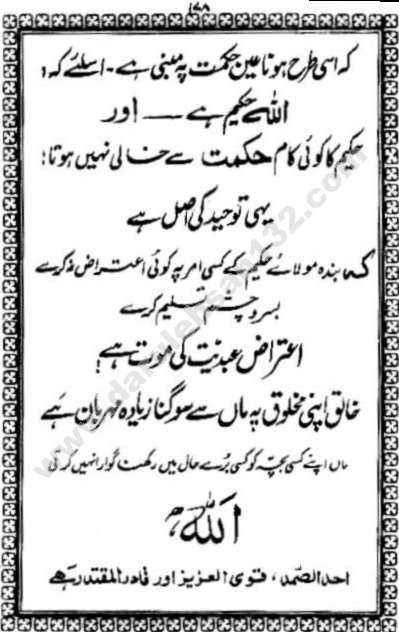 ۱۷۸
کہ اسی طرح ہونا عین حکمت پہ مبنی ہے۔ اسلئے کہ :
اللہ حکیم ہے — اور
حکیم کا کوئی کام حکمت سے خالی نہیں ہوتا؛
یہی توحید کی اصل ہے
کہ بندہ مولائے حکیم کے کسی امر پہ کوئی اعتراض نہ کرے
بسر و چشم تسلیم کرے
اعتراض عبدیت کی موت ہے؛
خالق اپنی مخلوق پہ ماں سے سو گنا زیادہ مہربان ہے
ماں اپنے کسی بچہ کو کسی بُرے حال میں رکھنا گوارا نہیں کرتی
اللہ
احد الصمد، قوی العزیز اور قادر المقتدر ہے
www.darulehsan132.com